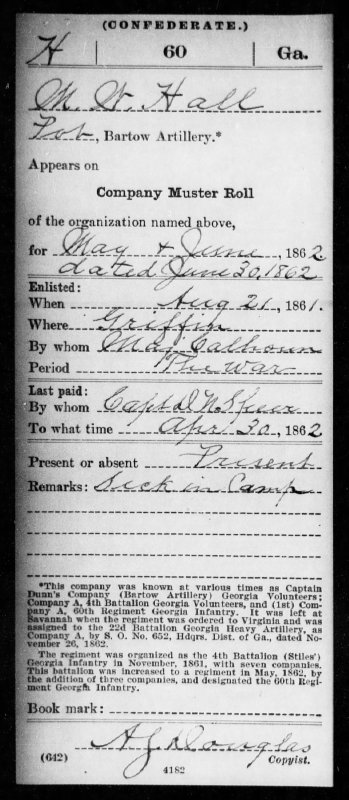 (CONFEDERATE.)
H | 60 | Ga.
M. W. Hall
Pvt, Bartow Artillery.*
Appears on
Company Muster Roll
of the organization named above,
for May & June, 1862
dated June 30, 1862
Enlisted:
When Aug 21, 1861.
Where Griffin
By whom Maj Calhoun
Period The war
Last paid:
By whom Capt D. N. Speer
To what time Apr 30, 1862
Present or absent Present
Remarks: Sick in Camp
*This company was known at various times as Captain
Dunn's Company (Bartow Artillery) Georgia Volunteers;
Company A, 4th Battalion Georgia Volunteers, and (1st) Com-
pany A, 60th Regiment Georgia Infantry. It was left at
Savannah when the regiment was ordered to Virginia and was
assigned to the 22d Battalion Georgia Heavy Artillery, as
Company A, by S. O. No. 652, Hdqrs. Dist. of Ga., dated No-
vember 26, 1862.
The regiment was organized as the 4th Battalion (Stiles')
Georgia Infantry in November, 1861, with seven companies.
This battalion was increased to a regiment in May, 1862, by
the addition of three companies, and designated the 60th Regi-
ment Georgia Infantry.
Book mark:
A J Douglas
(642) Copyist.
4182